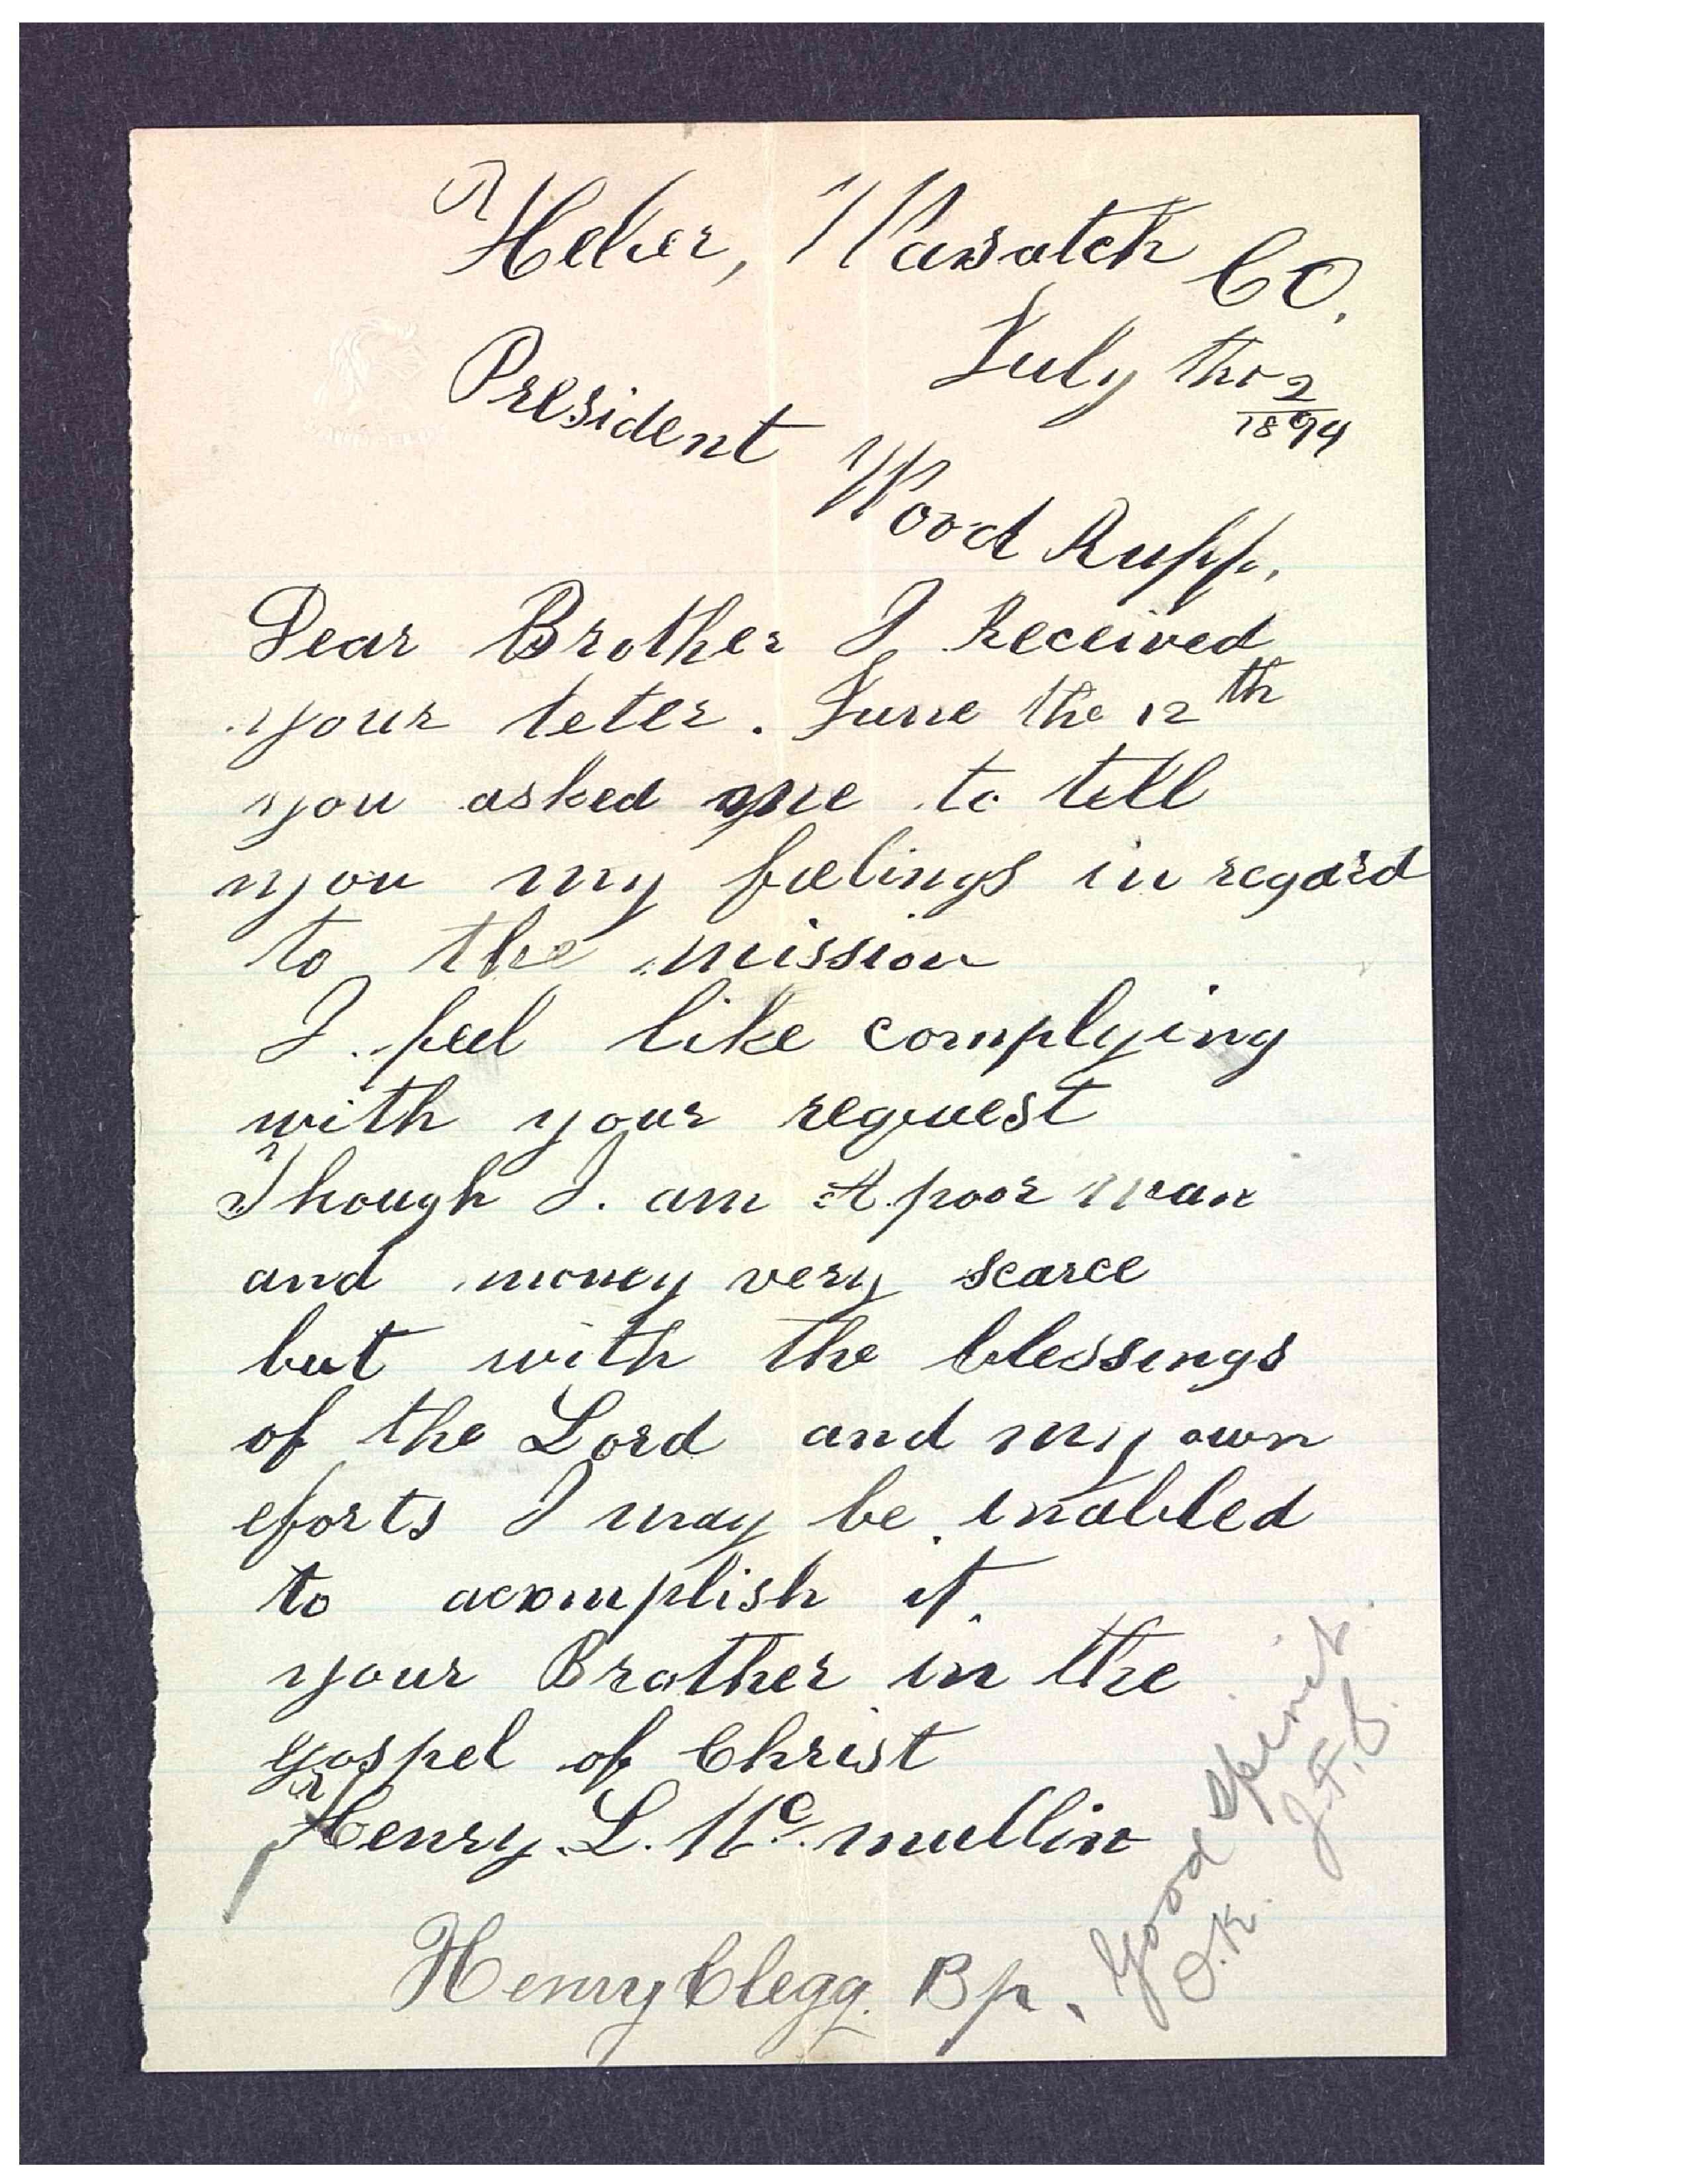 Heber, Wasatch CO.
July the 2
1894
President
Wood Ruff.
Dear Brother I Received
your leter. June the 12th
you asked me to tell
you my feelings in regard
to the mission
I feel like complying
with your request
Though I. am A poor man
and money very scarce
but with the blessings
of the Lord and my own
eforts I may be enabled
to acomplish it.
your Brother in the
gospel of Christ
Henry. L. Mc. mullin
Henry Clegg. Bp.
Good Spirit.
O.K. J.F.S.